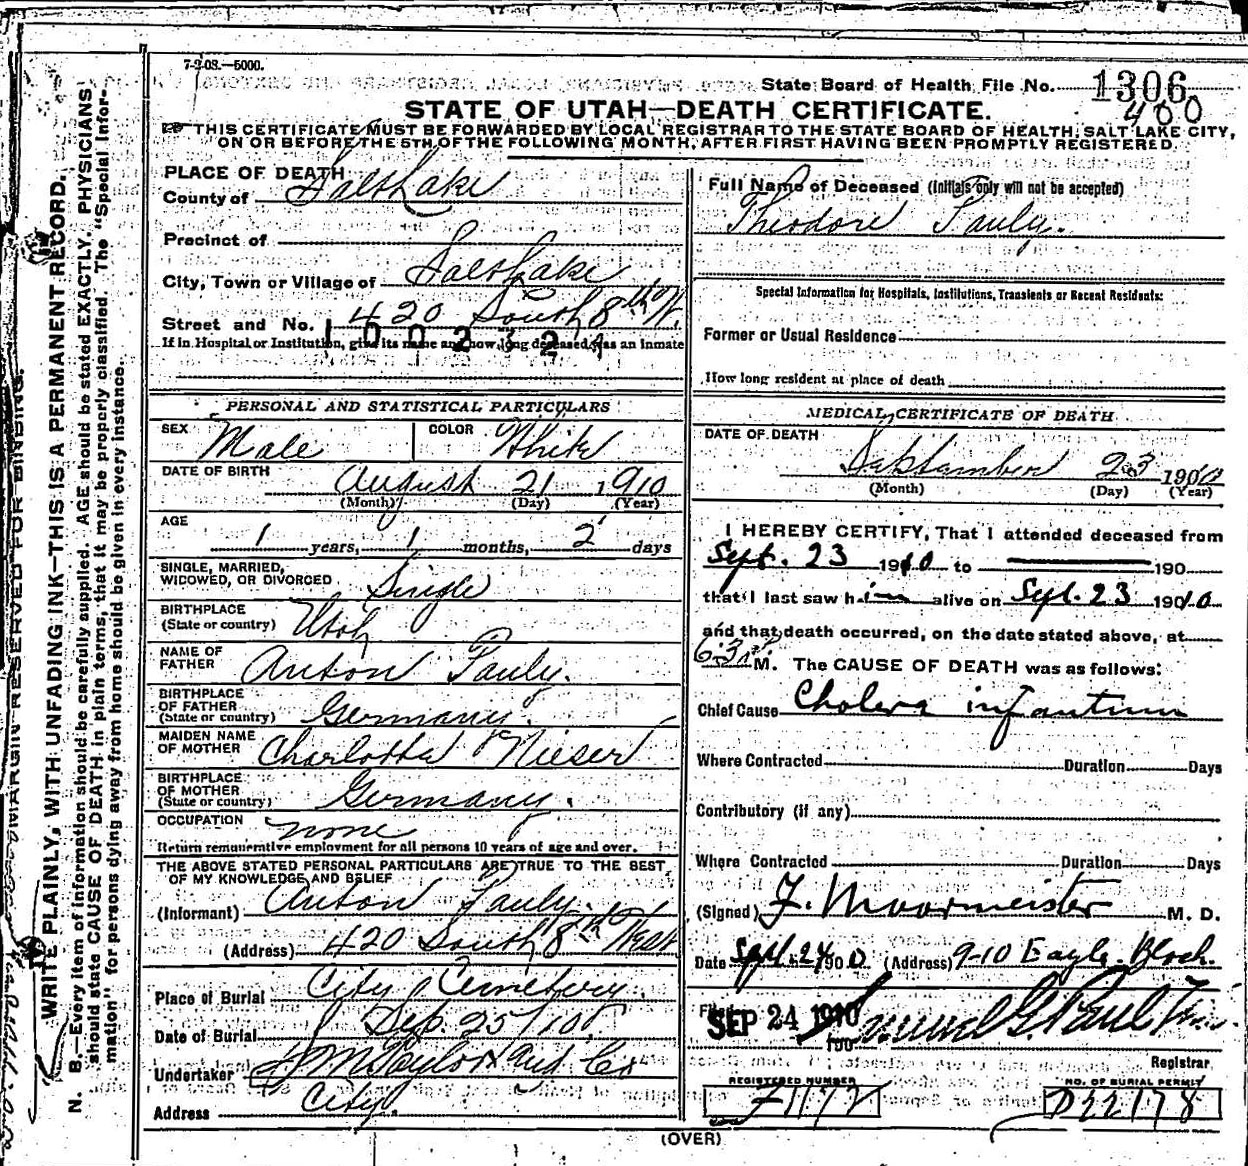 7-2-08.—5000.
State Board of Health File No. 1306
400
STATE OF UTAH—DEATH CERTIFICATE.
THIS CERTIFICATE MUST BE FORWARDED BY LOCAL REGISTRAR TO THE STATE BOARD OF HEALTH, SALT LAKE CITY,
ON OR BEFORE THE 5TH OF THE FOLLOWING MONTH, AFTER FIRST HAVING BEEN PROMPTLY REGISTERED.
MARGIN RESERVED FOR BINDING.
WRITE PLAINLY, WITH UNFADING INK—THIS IS A PERMANENT RECORD.
N. B.—Every item of information should be carefully supplied. AGE should be stated EXACTLY. PHYSICIANS
should state CAUSE OF DEATH in plain terms, that it may be properly classified. The "Special Infor-
mation" for persons dying away from home should be given in every instance.
PLACE OF DEATH
County of Salt Lake
Precinct of
City, Town or Village of Salt Lake
Street and No. 420 South 8th W.
1002321
If in Hospital or Institution, give its name and how long deceased was an inmate
PERSONAL AND STATISTICAL PARTICULARS
SEX Male COLOR White
DATE OF BIRTH August 21 1910
(Month) (Day) (Year)
AGE
1 years, 1 months, 2 days
SINGLE, MARRIED,
WIDOWED, OR DIVORCED Single
BIRTHPLACE
(State or country) Utah
NAME OF
FATHER Anton Pauly.
BIRTHPLACE
OF FATHER
(State or country) Germany.
MAIDEN NAME
OF MOTHER Charlotta Nieser
BIRTHPLACE
OF MOTHER
(State or country) Germany.
OCCUPATION none
Return remunerative employment for all persons 10 years of age and over.
THE ABOVE STATED PERSONAL PARTICULARS ARE TRUE TO THE BEST
OF MY KNOWLEDGE AND BELIEF
(Informant) Anton Pauly.
(Address) 420 South 8th West
Place of Burial City Cemetery.
Date of Burial Sep. 25/10
Undertaker S M Taylor and Co
Address City.
Full Name of Deceased (Initials only will not be accepted)
Theodore Pauly.
Special Information for Hospitals, Institutions, Transients or Recent Residents:
Former or Usual Residence
How long resident at place of death
MEDICAL CERTIFICATE OF DEATH
DATE OF DEATH
September 23 1910
(Month) (Day) (Year)
I HEREBY CERTIFY, That I attended deceased from
Sept. 23 1910 to 190
that I last saw him alive on Sept. 23 1910
and that death occurred, on the date stated above, at
M. The CAUSE OF DEATH was as follows:
Chief Cause Cholera infantum
Where Contracted Duration Days
Contributory (if any)
Where Contracted Duration Days
(Signed) F. Moormeister M. D.
Date Sept. 24 1900 (Address) 9-10 Eagle Block.
SEP 24 1910 Samuel G. Paul
190
Registrar
REGISTERED NUMBER
NO. OF BURIAL PERMIT
D22178
(OVER)